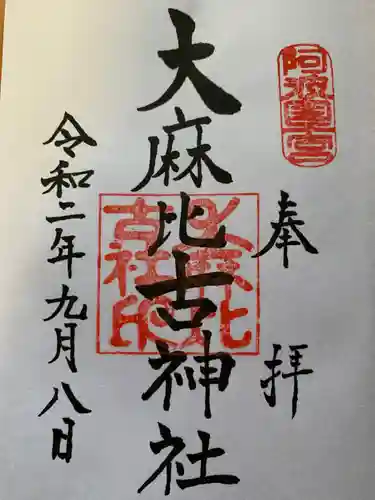 阿波國一宮
奉拝
大麻比古神社
大麻比古社印
令和二年九月八日